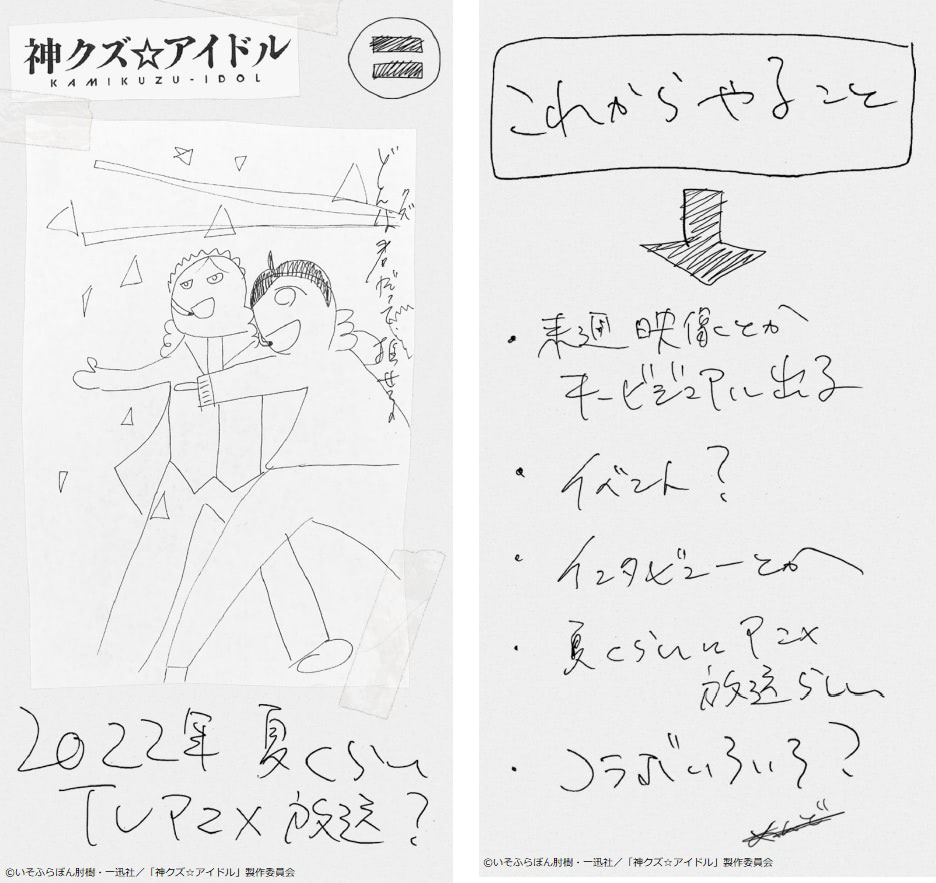 神クズ☆アイドル
KAMIKUZU-IDOL
クズ
どんな君だって推せるよ
2022年 夏くらい
TVアニメ 放送?
©いそふらぼん肘樹・一迅社/「神クズ☆アイドル」製作委員会
これからやること
・来週 映像とか
キービジュアル出る
・イベント?
・インタビューとか
・夏くらいにアニメ
放送らしい
・コラボいろいろ?
©いそふらぼん肘樹・一迅社/「神クズ☆アイドル」製作委員会